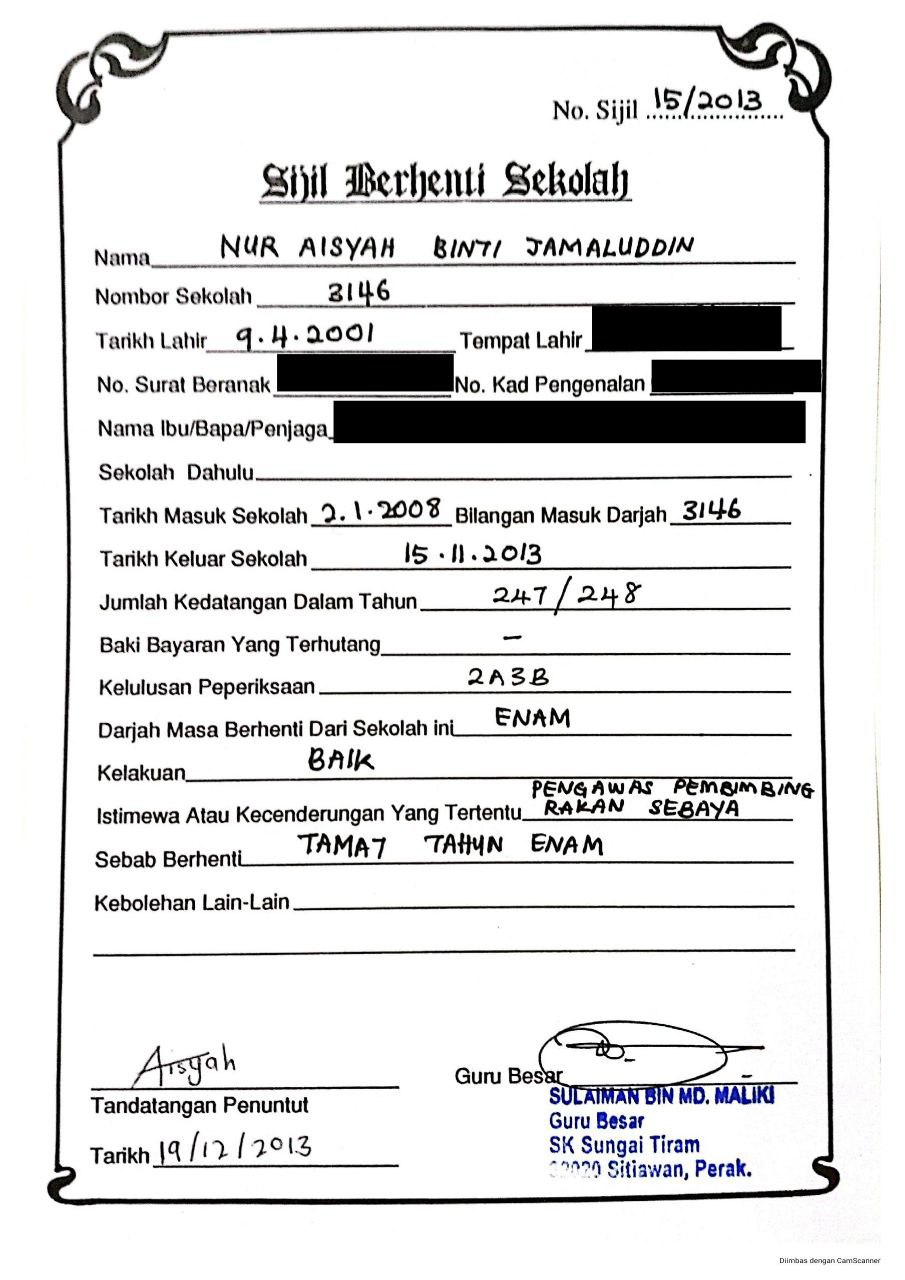 No. Sijil 15/2013
Sijil Berhenti Sekolah
Nama NUR AISYAH BINTI JAMALUDDIN
Nombor Sekolah 3146
Tarikh Lahir 9.4.2001 Tempat Lahir
No. Surat Beranak No. Kad Pengenalan
Nama Ibu/Bapa/Penjaga
Sekolah Dahulu
Tarikh Masuk Sekolah 2.1.2008 Bilangan Masuk Darjah 3146
Tarikh Keluar Sekolah 15.11.2013
Jumlah Kedatangan Dalam Tahun 247/248
Baki Bayaran Yang Terhutang –
Kelulusan Peperiksaan 2A3B
Darjah Masa Berhenti Dari Sekolah ini ENAM
Kelakuan BAIK
PENGAWAS PEMBIMBING
Istimewa Atau Kecenderungan Yang Tertentu RAKAN SEBAYA
Sebab Berhenti TAMAT TAHUN ENAM
Kebolehan Lain-Lain
Aisyah
Tandatangan Penuntut
Tarikh 19/12/2013
Guru Besar
SULAIMAN BIN MD. MALIKI
Guru Besar
SK Sungai Tiram
Sitiawan, Perak.
Diimbas dengan CamScanner